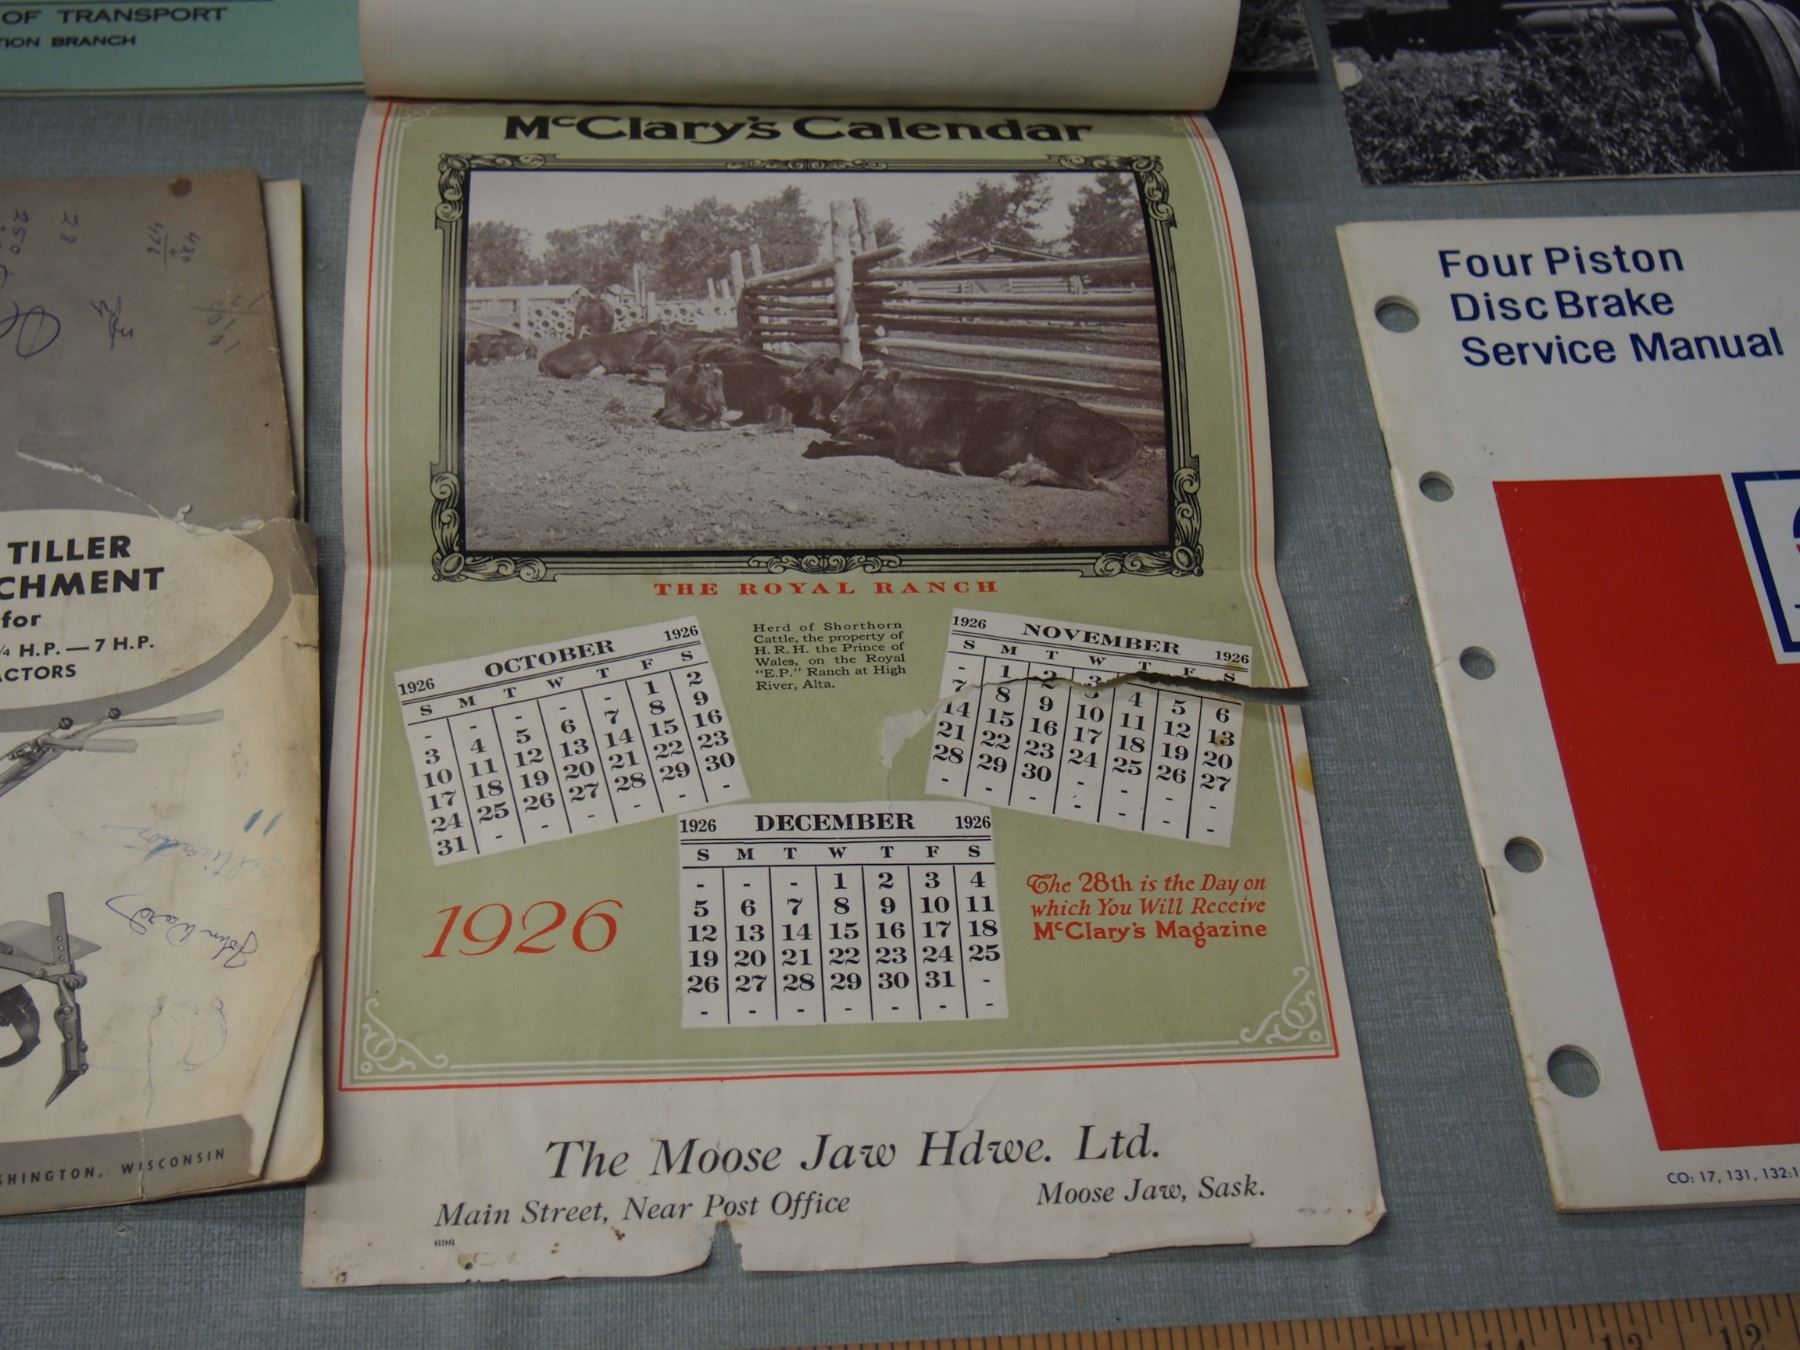 OF TRANSPORT
TION BRANCH
McClary's Calendar
THE ROYAL RANCH
Herd of Shorthorn
Cattle, the property of
H. R. H. the Prince of
Wales, on the Royal
"E.P." Ranch at High
River, Alta.
1926 OCTOBER 1926
S M T W T F S
- - - - - 1 2
3 4 5 6 7 8 9
10 11 12 13 14 15 16
17 18 19 20 21 22 23
24 25 26 27 28 29 30
31 - - - - - -
1926 NOVEMBER 1926
S M T W T F S
- 1 2 3 4 5 6
7 8 9 10 11 12 13
14 15 16 17 18 19 20
21 22 23 24 25 26 27
28 29 30 - - - -
- - - - - - -
1926 DECEMBER 1926
S M T W T F S
- - - 1 2 3 4
5 6 7 8 9 10 11
12 13 14 15 16 17 18
19 20 21 22 23 24 25
26 27 28 29 30 31 -
- - - - - - -
1926
The 28th is the Day on
which You Will Receive
McClary's Magazine
The Moose Jaw Hdwe. Ltd.
Main Street, Near Post Office
Moose Jaw, Sask.
696
TILLER
CHMENT
for
¼ H.P. — 7 H.P.
ACTORS
11
John Ward
SHINGTON, WISCONSIN
Four Piston
Disc Brake
Service Manual
CO: 17, 131, 132:1
12